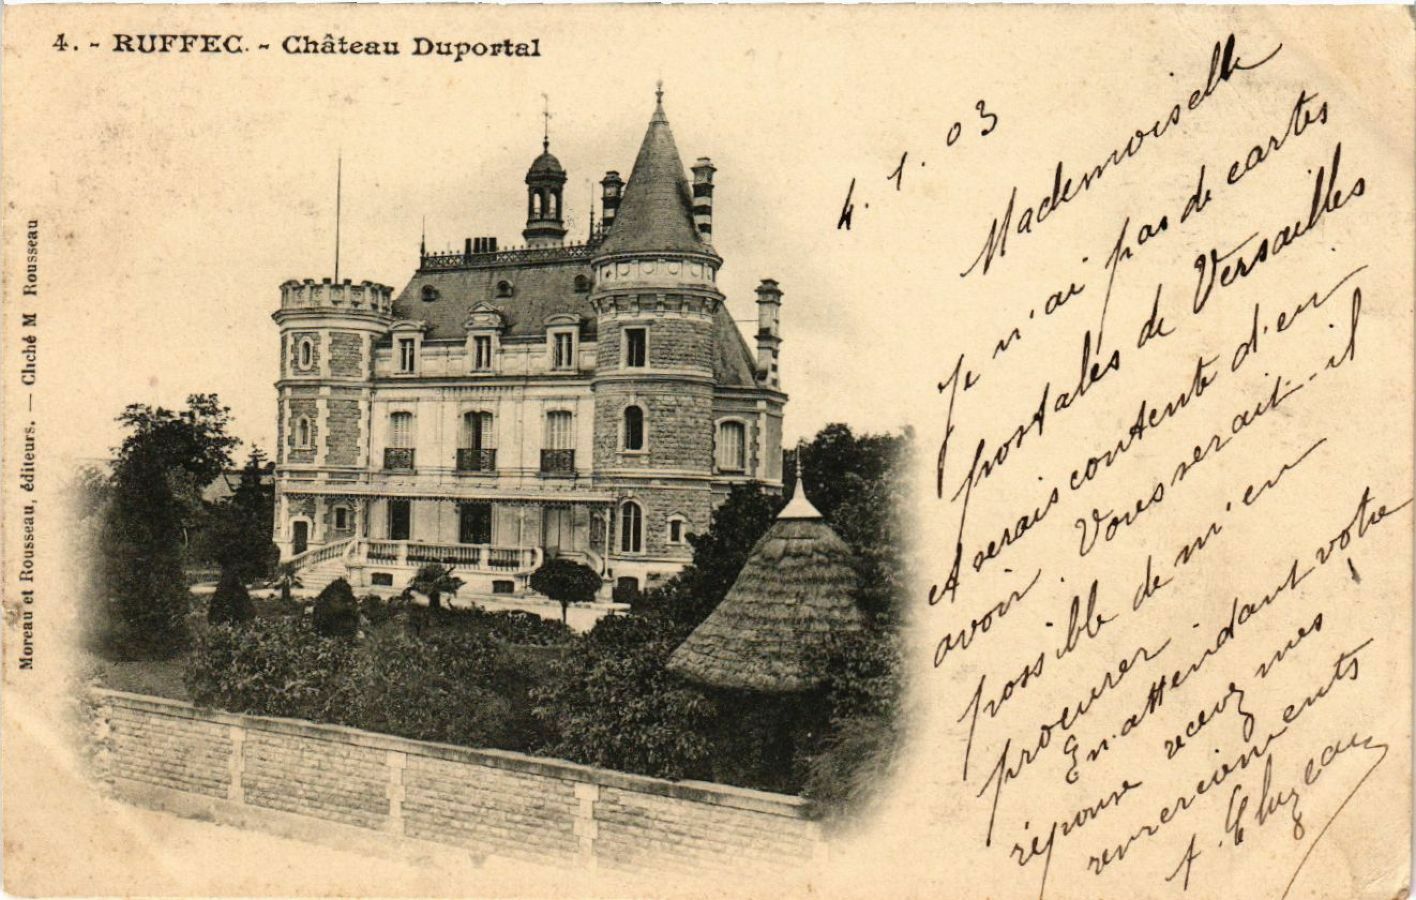 4. - RUFFEC. - Château Duportal
Moreau et Rousseau, éditeurs. — Cliché M Rousseau
4. 1. 03
Mademoiselle
Je n'ai pas de cartes
postales de Versailles
et serais contente d'en
avoir. Vous serait-il
possible de m'en
procurer
En attendant votre
réponse recevez mes
remerciements !